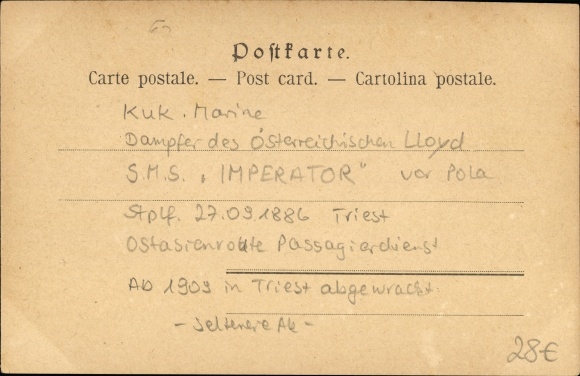 Postkarte.
Carte postale. — Post card. — Cartolina postale.
KuK. Marine
Dampfer des Österreichischen Lloyd
S.M.S. „IMPERATOR" vor Pola
Stplf. 27.09.1886 Triest
Ostasienroute Passagierdienst
Ab 1909 in Triest abgewrackt.
- seltenere Ak -
28€